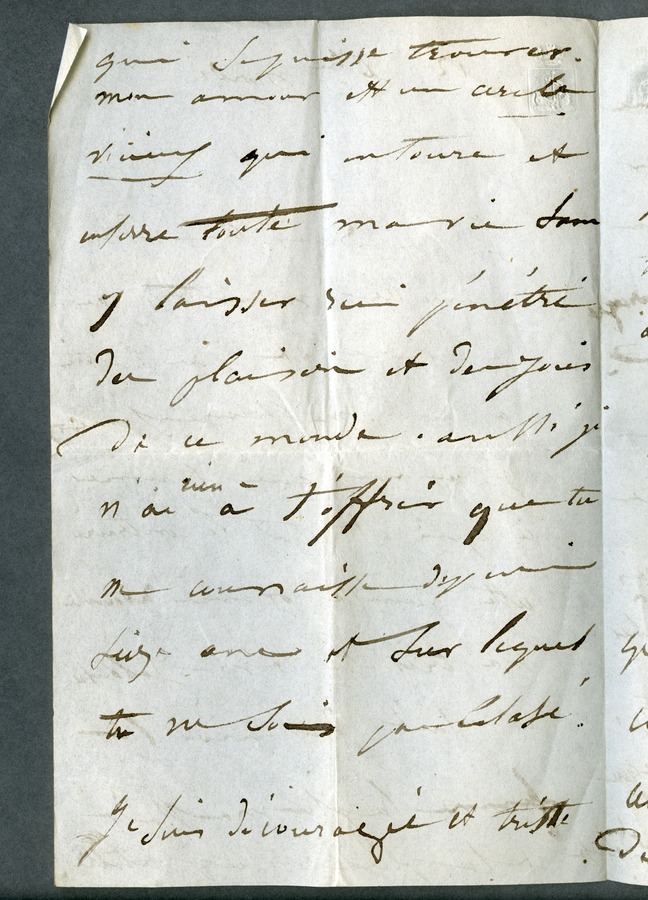 qui se puisse trouver.
mon amour est un cercle
vicieux qui entoure et
enserre toute ma vie sans
y laisser rien pénétré
des plaisirs et des joies
de ce monde. aussi je
n'ai rien à t'offrir que tu
ne connaisse depuis
seize ans et sur lequel
tu ne sois pas blasé.
Je suis découragée et triste